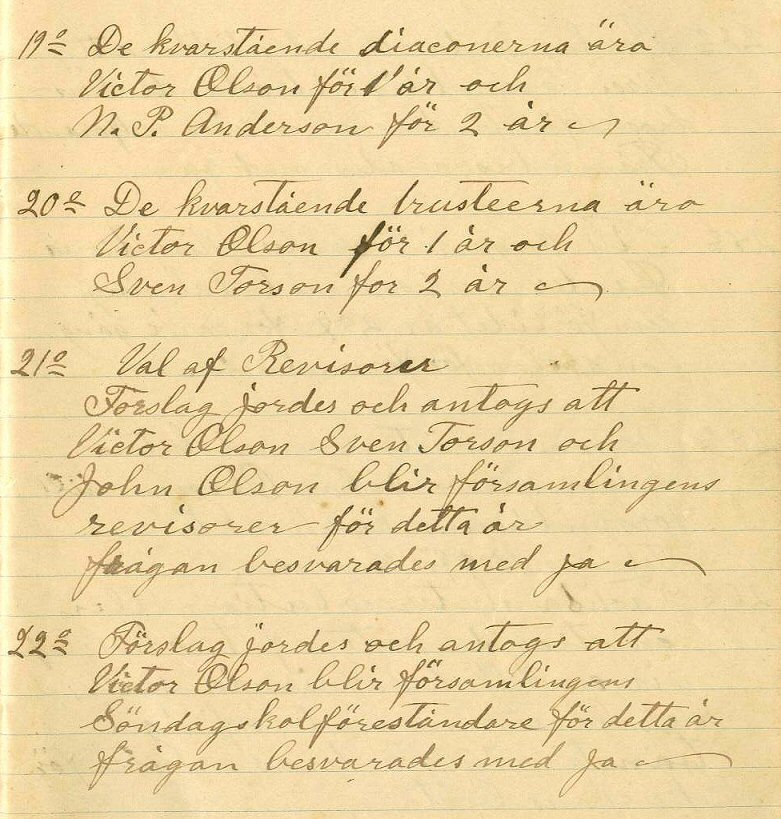 19o De kvarstående diaconerna äro
Victor Olson för 1 år och
N. P. Anderson för 2 år
20e De kvarstående trusteerna äro
Victor Olson för 1 år och
Sven Torson for 2 år
21o Val af Revisorer
Forslag jordes och antogs att
Victor Olson Sven Torson och
John Olson blir församlingens
revisorer för detta år
frågan besvarades med ja
22o Förslag jordes och antogs att
Victor Olson blir församlingens
Söndagskolföreståndare för detta år
frågan besvarades med ja